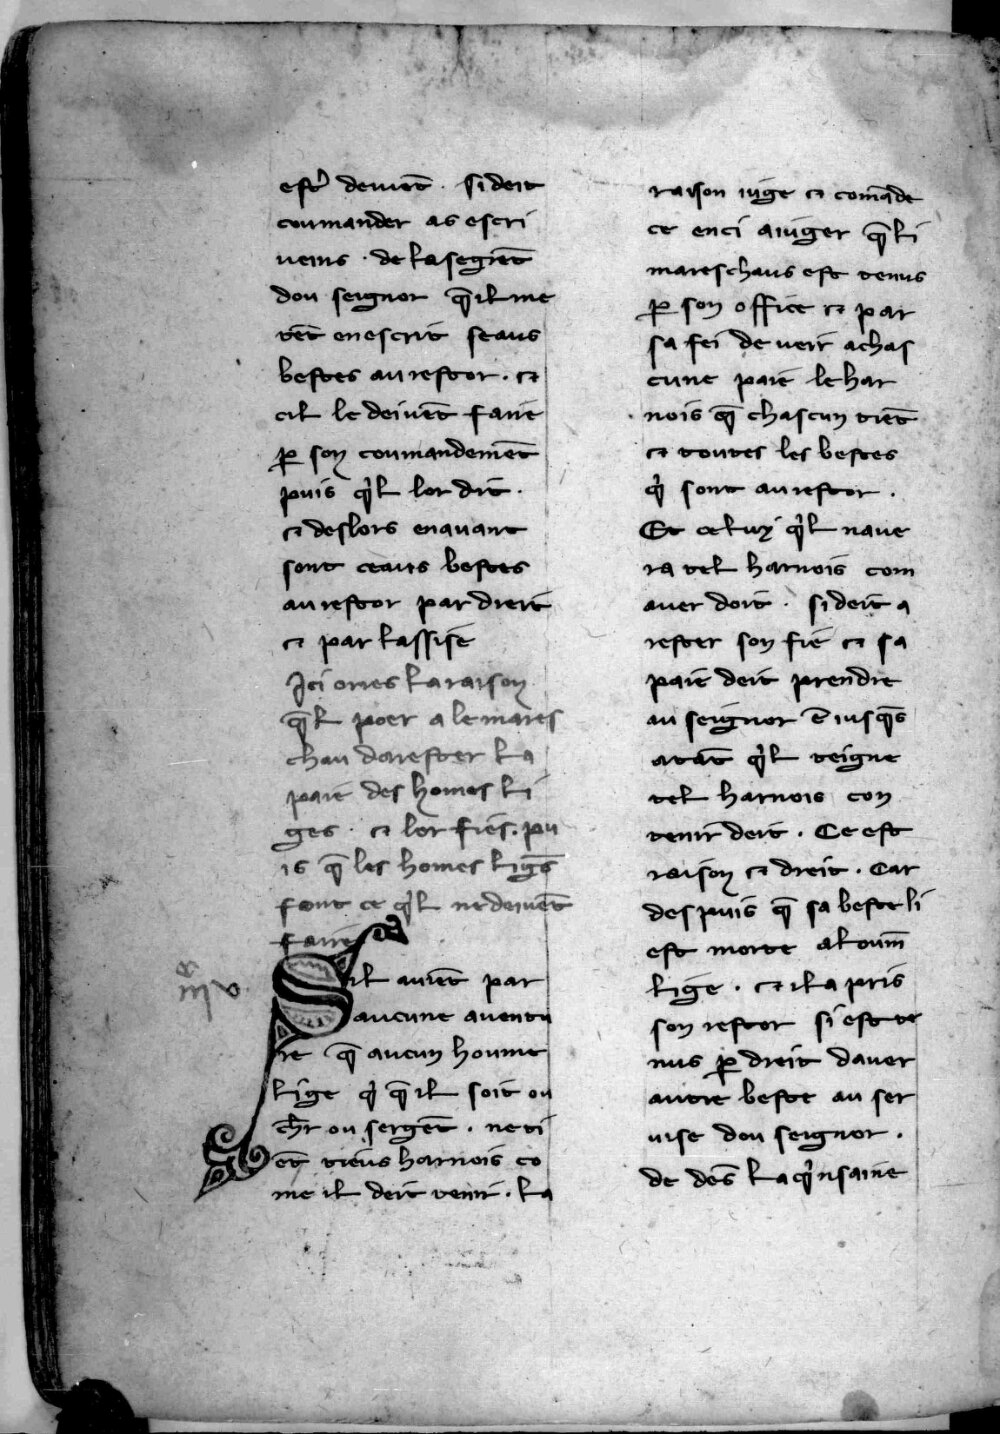 estr̾ deuient . si deit
coumander as escri
ueins . de la segiet̄
dou seignor q̄ il me
tet̄ en escrit seaus
bestes au restor . et
cil le deiuent̄ faire
ꝑ son coumandemet̄
puis qͥl lor dit .
et deslors enauant
sont ceaus bestes
au restor par dreit
et par lassise
Ici ores la raison
q̄l poer a le mares
chau darester la
paie des homes li
ges . et lor fies . pu
is q̄ les homes liges̄
font ce qͥl ne deiuent̄
faire
Sil auient̄ par
aucune auentu
re q̄ aucun houme
lige qͥ q̄ il soit ou
ch̄r ou serget̄ . ne ti
et̄ tieus harnois co
me il deit tenir . la
raison iuge et comāde
ce enci a iuger q̄ li
mareschaus est tenus
ꝑ son office et par
sa fei de ueir a chas
cune paie le har
nois q̄ chascun tiet̄
et toutes les bestes
qͥ sont au restor .
Et celuy qͥl naue
ra tel harnois com
auer doit . si deit a
rester son fie et sa
paie deit prendre
au seignor ē iusq̄s
atāt qͥl teigne
tel harnois con
tenir deit . Ce est
raison et dreit . Car
despuis q̄ sa beste li
est morte al oum̄
lige . et il a pris
son restor si est te
nus ꝑ dreit dauer
autre beste au ser
uise dou seignor .
de des̄ la qͥnsaine